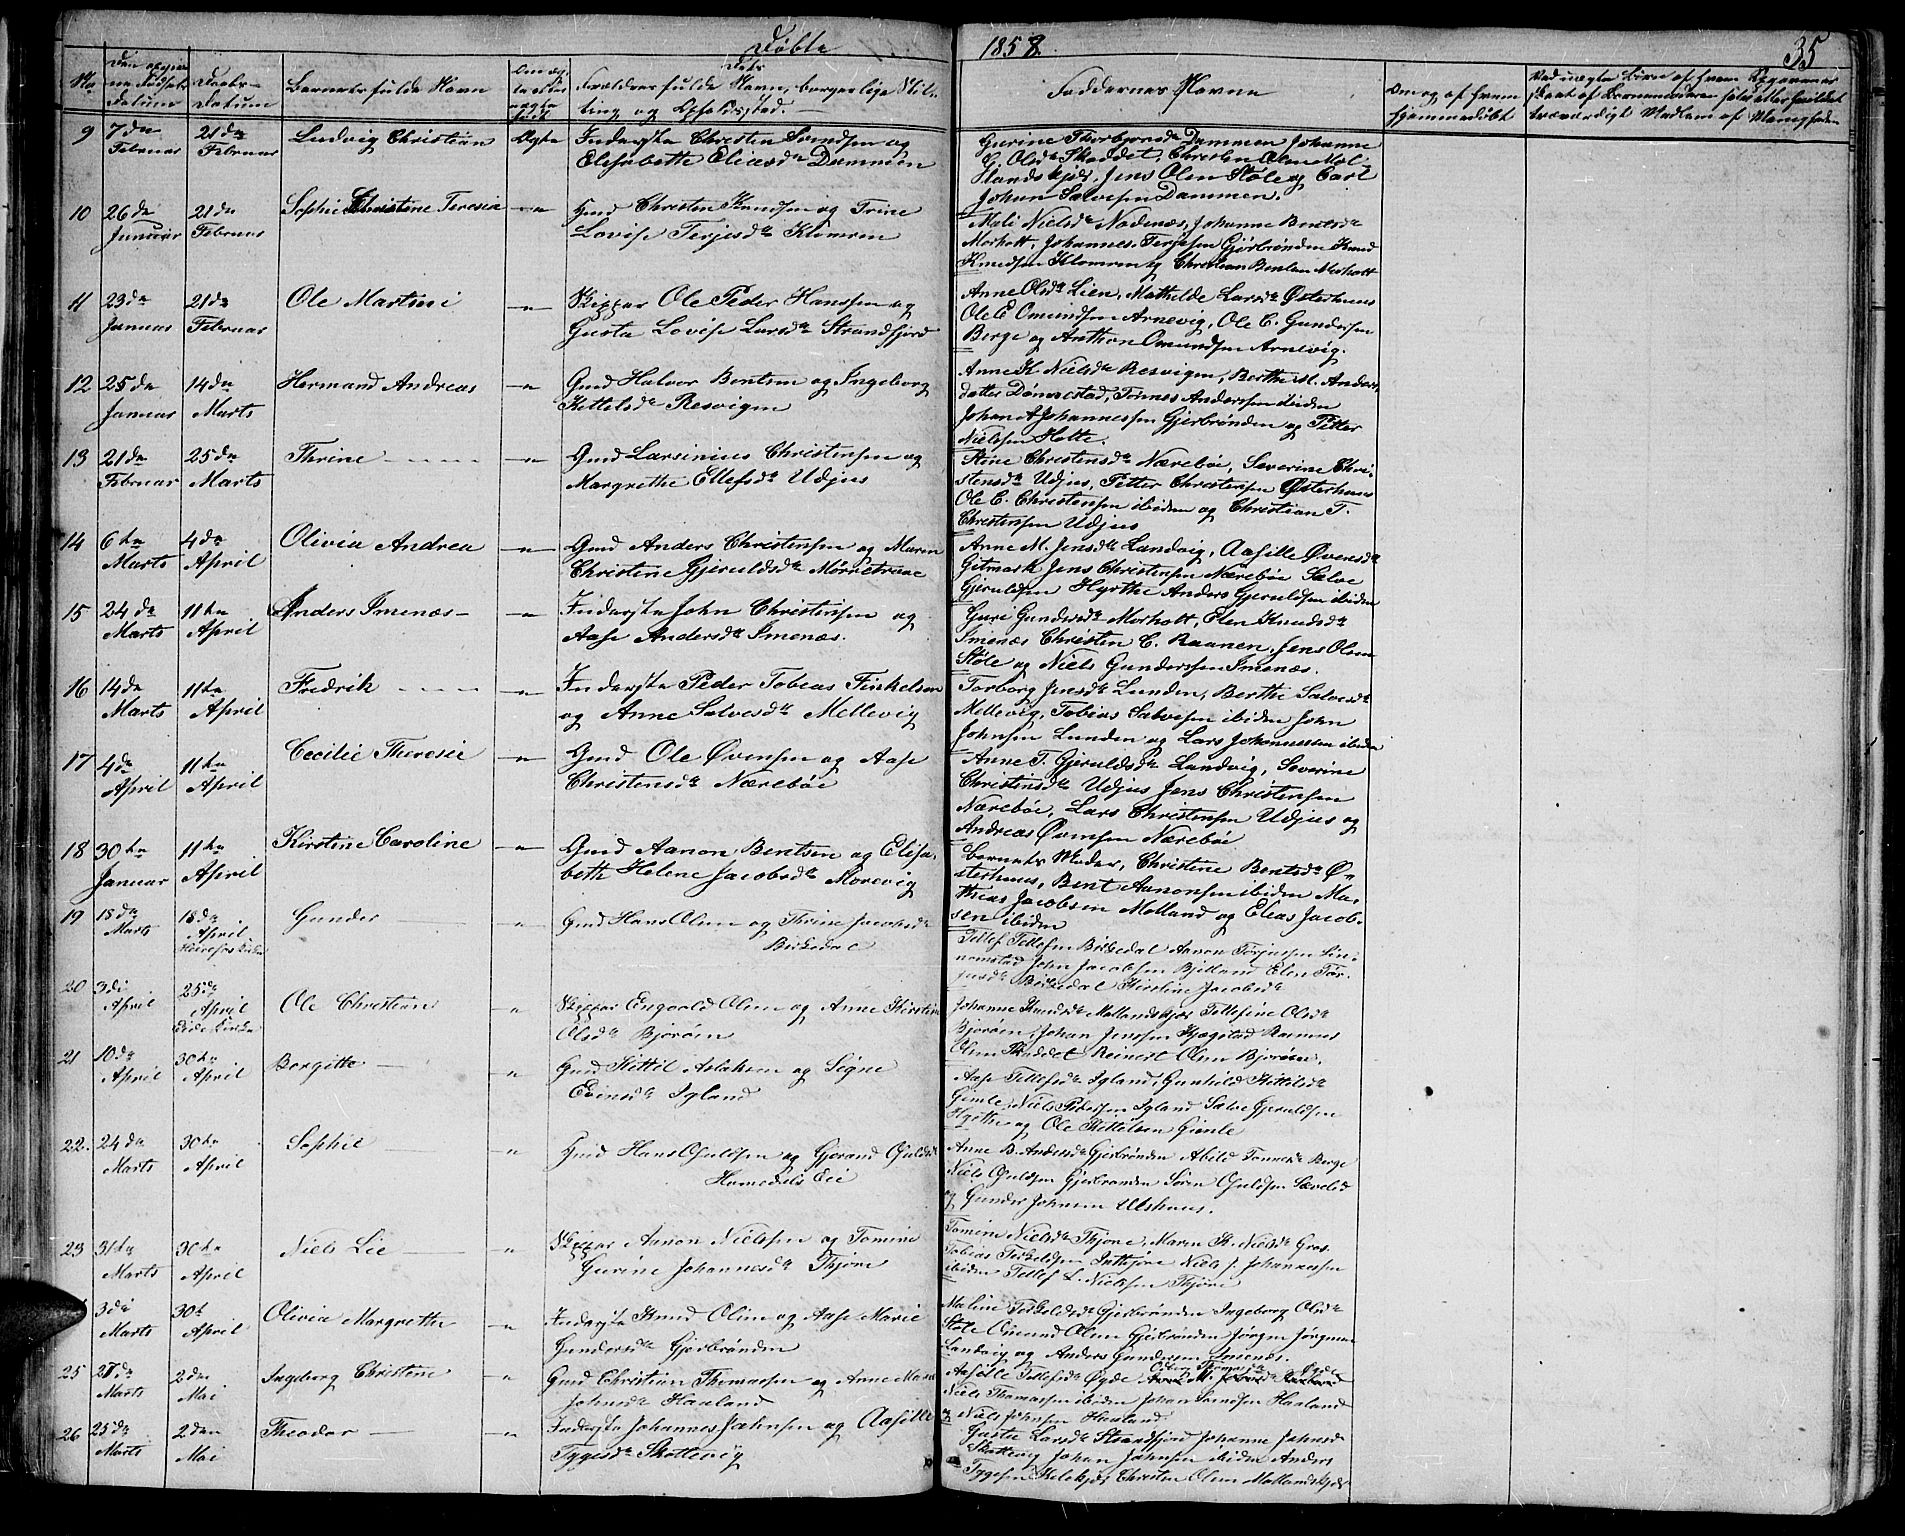 Døbte
1858.
35
No
Daabs-
Datum
Barnets fulde Navn
Forældres fulde Navn, borgerlige Stil-
ling og Opholdssted.
Faddernes Navne
Om og af hvem
hjemmedøbt
9 7de Februar 21de Februar Ludvig Christian Ægte Inderste Christen Svendsen og
Elisabetthe Eliasd. Dammen
Gurine Thorbjørnsd. Dammen Johanne
G. Olsd. Skaddet, Christen Olsen Mol-
landskjær, Jens Olsen Støle og Carl
Johan Salvesen Dammen.
10 26de Januar 21de Februar Sophie Christine Teresia Gmd Christen Knudsen og Trine
Lovise Terjesd. Klomren
Mali Nielsd. Nodenæs, Johanne Bentsd.
Morholt, Johannes Terjesen Gjerbrønden Knud
Knudsen Klomren og Christian Bentsen Morholt
11 23de Januar 21de Februar Ole Martini Skipper Ole Peder Hanssen og
Gusta Lovise Larsd. Strandfjord
Anne Olsd. Lien, Mathilde Larsd. Østerhuus
Ole E Omundsen Arnevig, Ole C. Gundersen
Berge og Anthon Omundsen Arnevig.
12 25de Januar 14de Marts Hermand Andreas Gmd Halvor Bentsen og Ingeborg
Kittelsd. Resvigen
Anne K Nielsd. Resvigen, Berthe M. Anders
datter Dønnestad, Tønnes Anderssen ibiden
Johan A Johannessen Gjerbrønden og Petter
Nielssen Holte.
13 21de Februar 25de Marts Thrine Gmd Larsinius Christensen og
Margrethe Ellefsd. Udjus
Stine Christensd. Nærebøe, Severine Chri-
stensd. Udjus, Petter Christensen Østerhuus
Ole C. Christensen ibiden og Christian T.
Christensen Udjus
14 6te Marts 4de April Olivia Andrea Gmd Anders Christensen og Maren
Christine Gjeruldsd.
Anne M. Jensd. Landvig, Aasille Øvensd.
Gitmark Jens Christensen Nærebøe Salve
Gjeruldsen Hyrthe Anders Gjeruldsen ibiden
15 24de Marts 11te April Anders Imenæs Inderste John Christensen og
Aase Andersd. Imenæs.
Guri Gundersd. Morholt, Elen Knudsd.
Imenæs Christen C. Raanen, Jens Olsen
Støle og Niels Gunderssen Imenæs.
16 14de Marts 11te April Fredrik Inderste Peder Tobias Finkelsen
og Anne Salvesd. Mellevig
Torborg Jensd. Lunden, Berthe Salvesd.
Mellevig, Tobias Salvesen ibiden John
Johnsen Lunden og Lars Johannessen ibiden
17 4de April 11te April Cecilie Theresie Gmd Ole Øvensen og Aase
Christensd. Nærebøe
Anne T. Gjeruldsd. Landvig, Severine
Christensd. Udjus Jens Christensen
Nærebøe, Lars Christensen Udjus og
Andreas Øvensen Nærebøe
18 30te Januar 11te April Kirstine Caroline Gmd Aanon Bentsen og Elisa-
beth Helene Jacobsd. Morevig
Barnets Moder, Christine Bentsd. Ø-
sterhuus, Bent Aanonsen ibiden Ma-
thias Jacobsen Molland og Elias Jacob-
sen ibiden
19 18de Marts 18de April Gunder Gmd Hans Olsen og Thrine Jacobsd.
Birkedal
Tellef Tellefsen Birkedal Aanon Torjussen
John Jacobsen Bjelland Elen Tor-
jusd. Birkedal Kirstine Jacobsd.
20 3di April 25de April Ole Christian Skipper Engvald Olsen og Anne Kirstine
Olsd. Bjorøen
Johanne Knudsd. Mollandskjær Tellefine Olsd.
Bjorøen, Johan Jenssen Hægstad Rasmus
Olsen Skaddet Reinert Olsen Bjorøen.
21 10de April 30te April Borgitte Gmd Kittil Aslaksen og Signe
Evensd. Igland
Aase Tellefsd. Igland, Gunhild Kittilsd.
Gimle, Niels Pedersen Igland Salve Gjeruldsen
Hyrthe og Ole Kittelsen Gimle
22. 24de Marts 30te April Sophie Gmd Hans Osuldsen og Gjerand Osuldsd.
Homedals Eie
Anne B. Andersd. Gjerbrønden Abild Tønnesd. Berge
Niels Osuldsen Gjerbrønden Søren Osuldsen
og Gunder Johnsen Ulshuus.
23 31te Marts 30te April Niels Lie Skipper Aanon Nielssen og Tomine
Gurine Johannesd. Thjore
Tomine Nielsd. Thjore, Maren K. Nielsd. Gros
Tobias Terkeldsen Indthjore Niels J. Johannessen
ibiden Tellef L. Nielssen Thjore
3di Marts 30te April Olivia Margrethe Inderste Knud Olsen og Aase Marie
Gundersd. Gjerbrønden
Maline Terkeldsd. Gjerbrønden Ingeborg Olsd.
Støle Omund Olsen Gjerbrønden Jørgen Jørgensen
Landvig og Anders Gundersen Imenæs.
25 27de Marts 2den Mai Ingeborg Christine Gmd Christian Thomassen og Anne Marie
Johnsd. Haaland
Aasille Tellefsd. Øyde
Niels Thomassen ibiden Johan Svendsen Haaland
og Niels Johnsen Haaland
26 25de Marts 2den Mai Theodor Inderste Johannes Johnsen og Aasille
Tygesd. Skottevig
Gustie Larsd. Strandfjord Johanne Johnsd.
Skottevig Johan Johnsen ibiden Anders
Tygesen Kilekjær Christen Olsen Mollandskjær